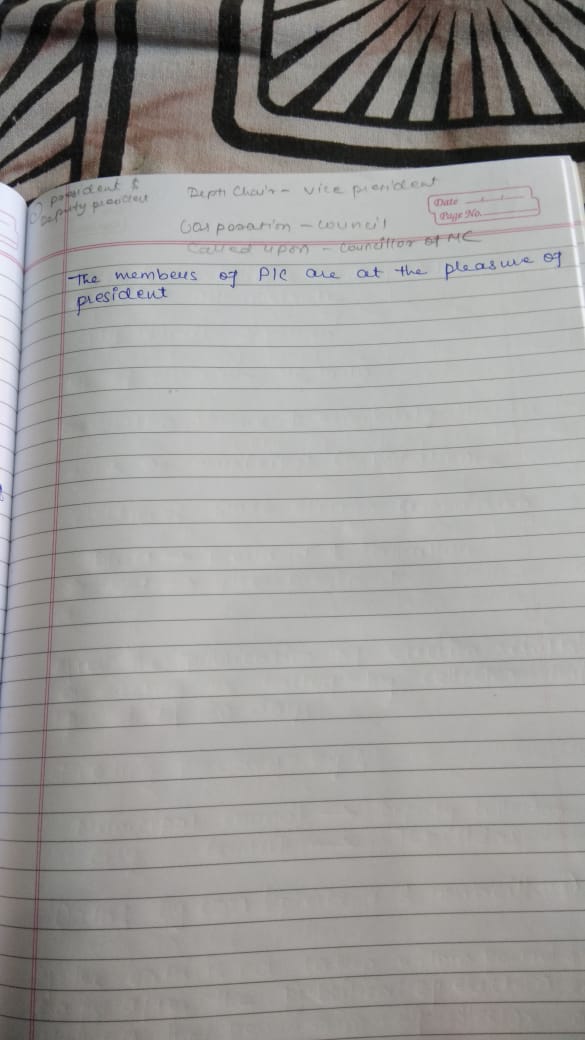 president &
Deputy president
Depti Chair - Vice president
Corporation - council
Called upon - Councillor of MC
Date
Page No.
The members of PIC are at the pleasure of
president